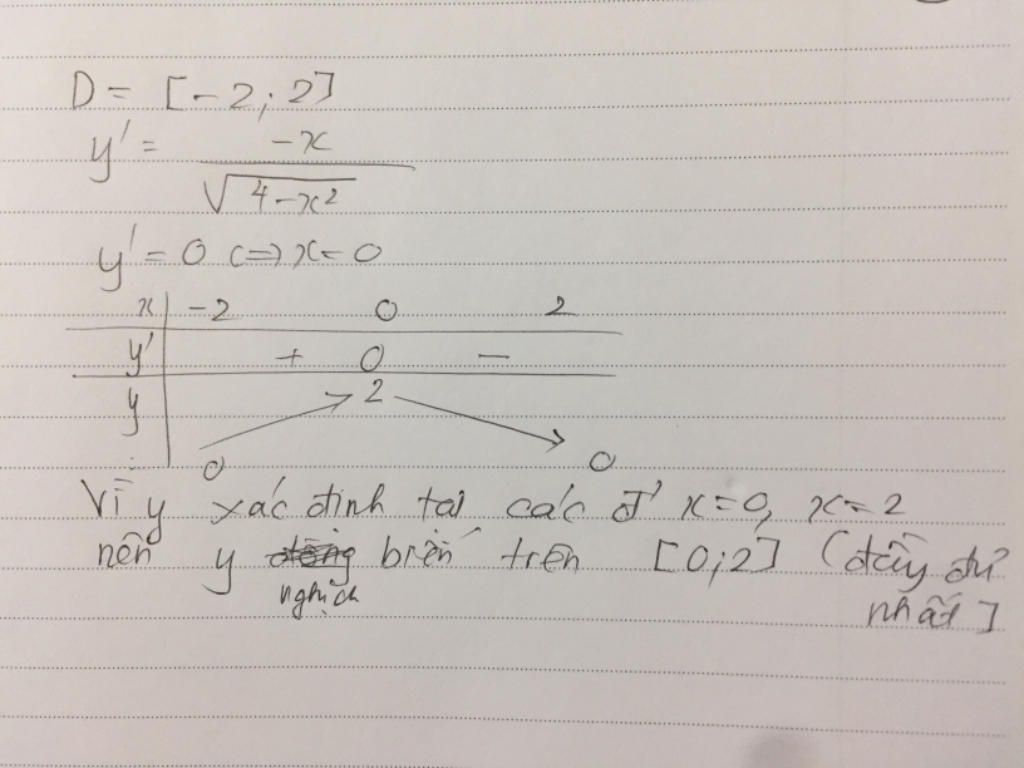 D = [-2; 2]
y' = -x / √(4-x²)
y' = 0 <=> x = 0
x -2 0 2
y' + 0 -
y 0 ↗ 2 ↘ 0
Vì y xác định tại các đ' x=0, x=2
nên y đồng biến trên [0;2] (đầy đủ
nghịch
nhất]